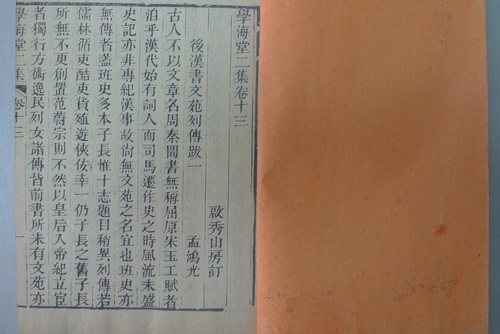 學海堂二集卷十三
啟秀山房訂
後漢書文苑列傳跋一 孟鴻光
古人不以文章名周秦間書無稱屈原宋玉工賦者
洎乎漢代始有詞人而司馬遷作史之時風流未盛
史記亦非專紀漢事故尙無文苑之名宜也班史亦
無傳者蓋班史多本子長惟十志題目稍異列傳若
儒林循吏酷吏貨殖遊俠佞幸一仍子長之舊子長
所無不更創置范蔚宗則不然以皇后入帝紀立宦
者獨行方術逸民列女諸傳皆前書所未有文苑亦
學海堂二集 卷十三 一